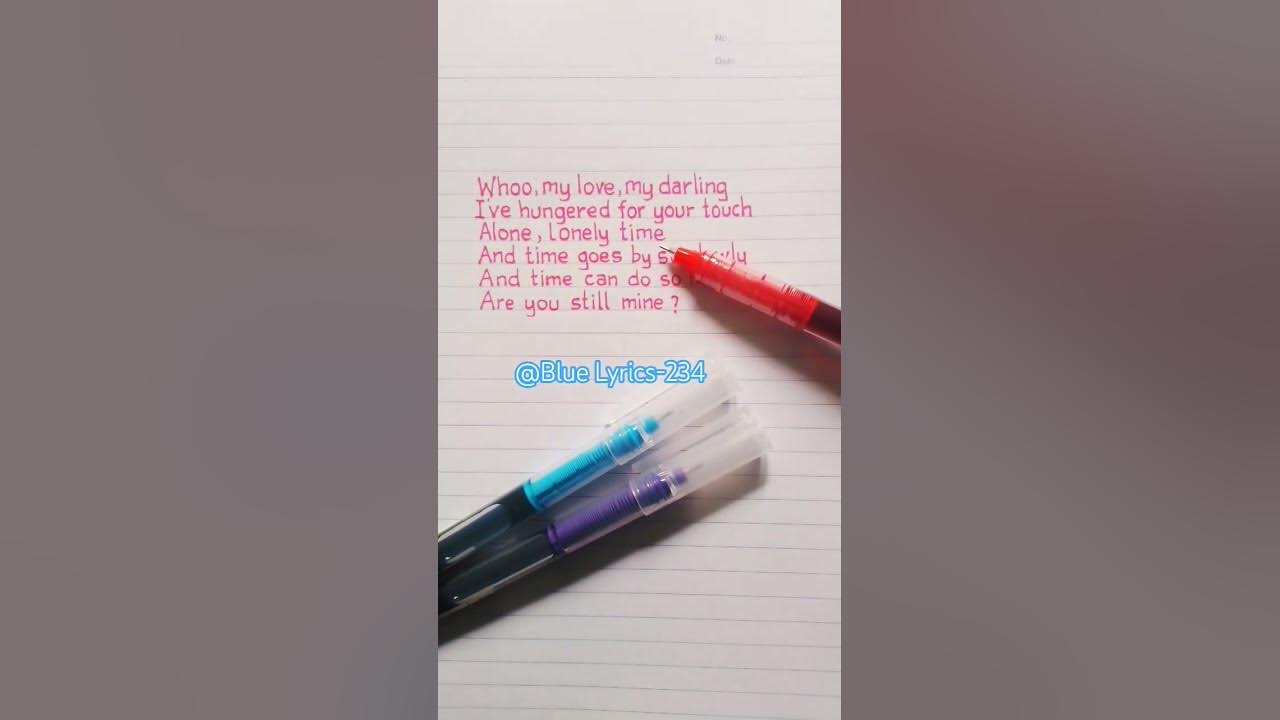 No.
Date
Whoo, my love, my darling
I've hungered for your touch
Alone, lonely time
And time goes by
And time can do so
Are you still mine?
@Blue Lyrics-234